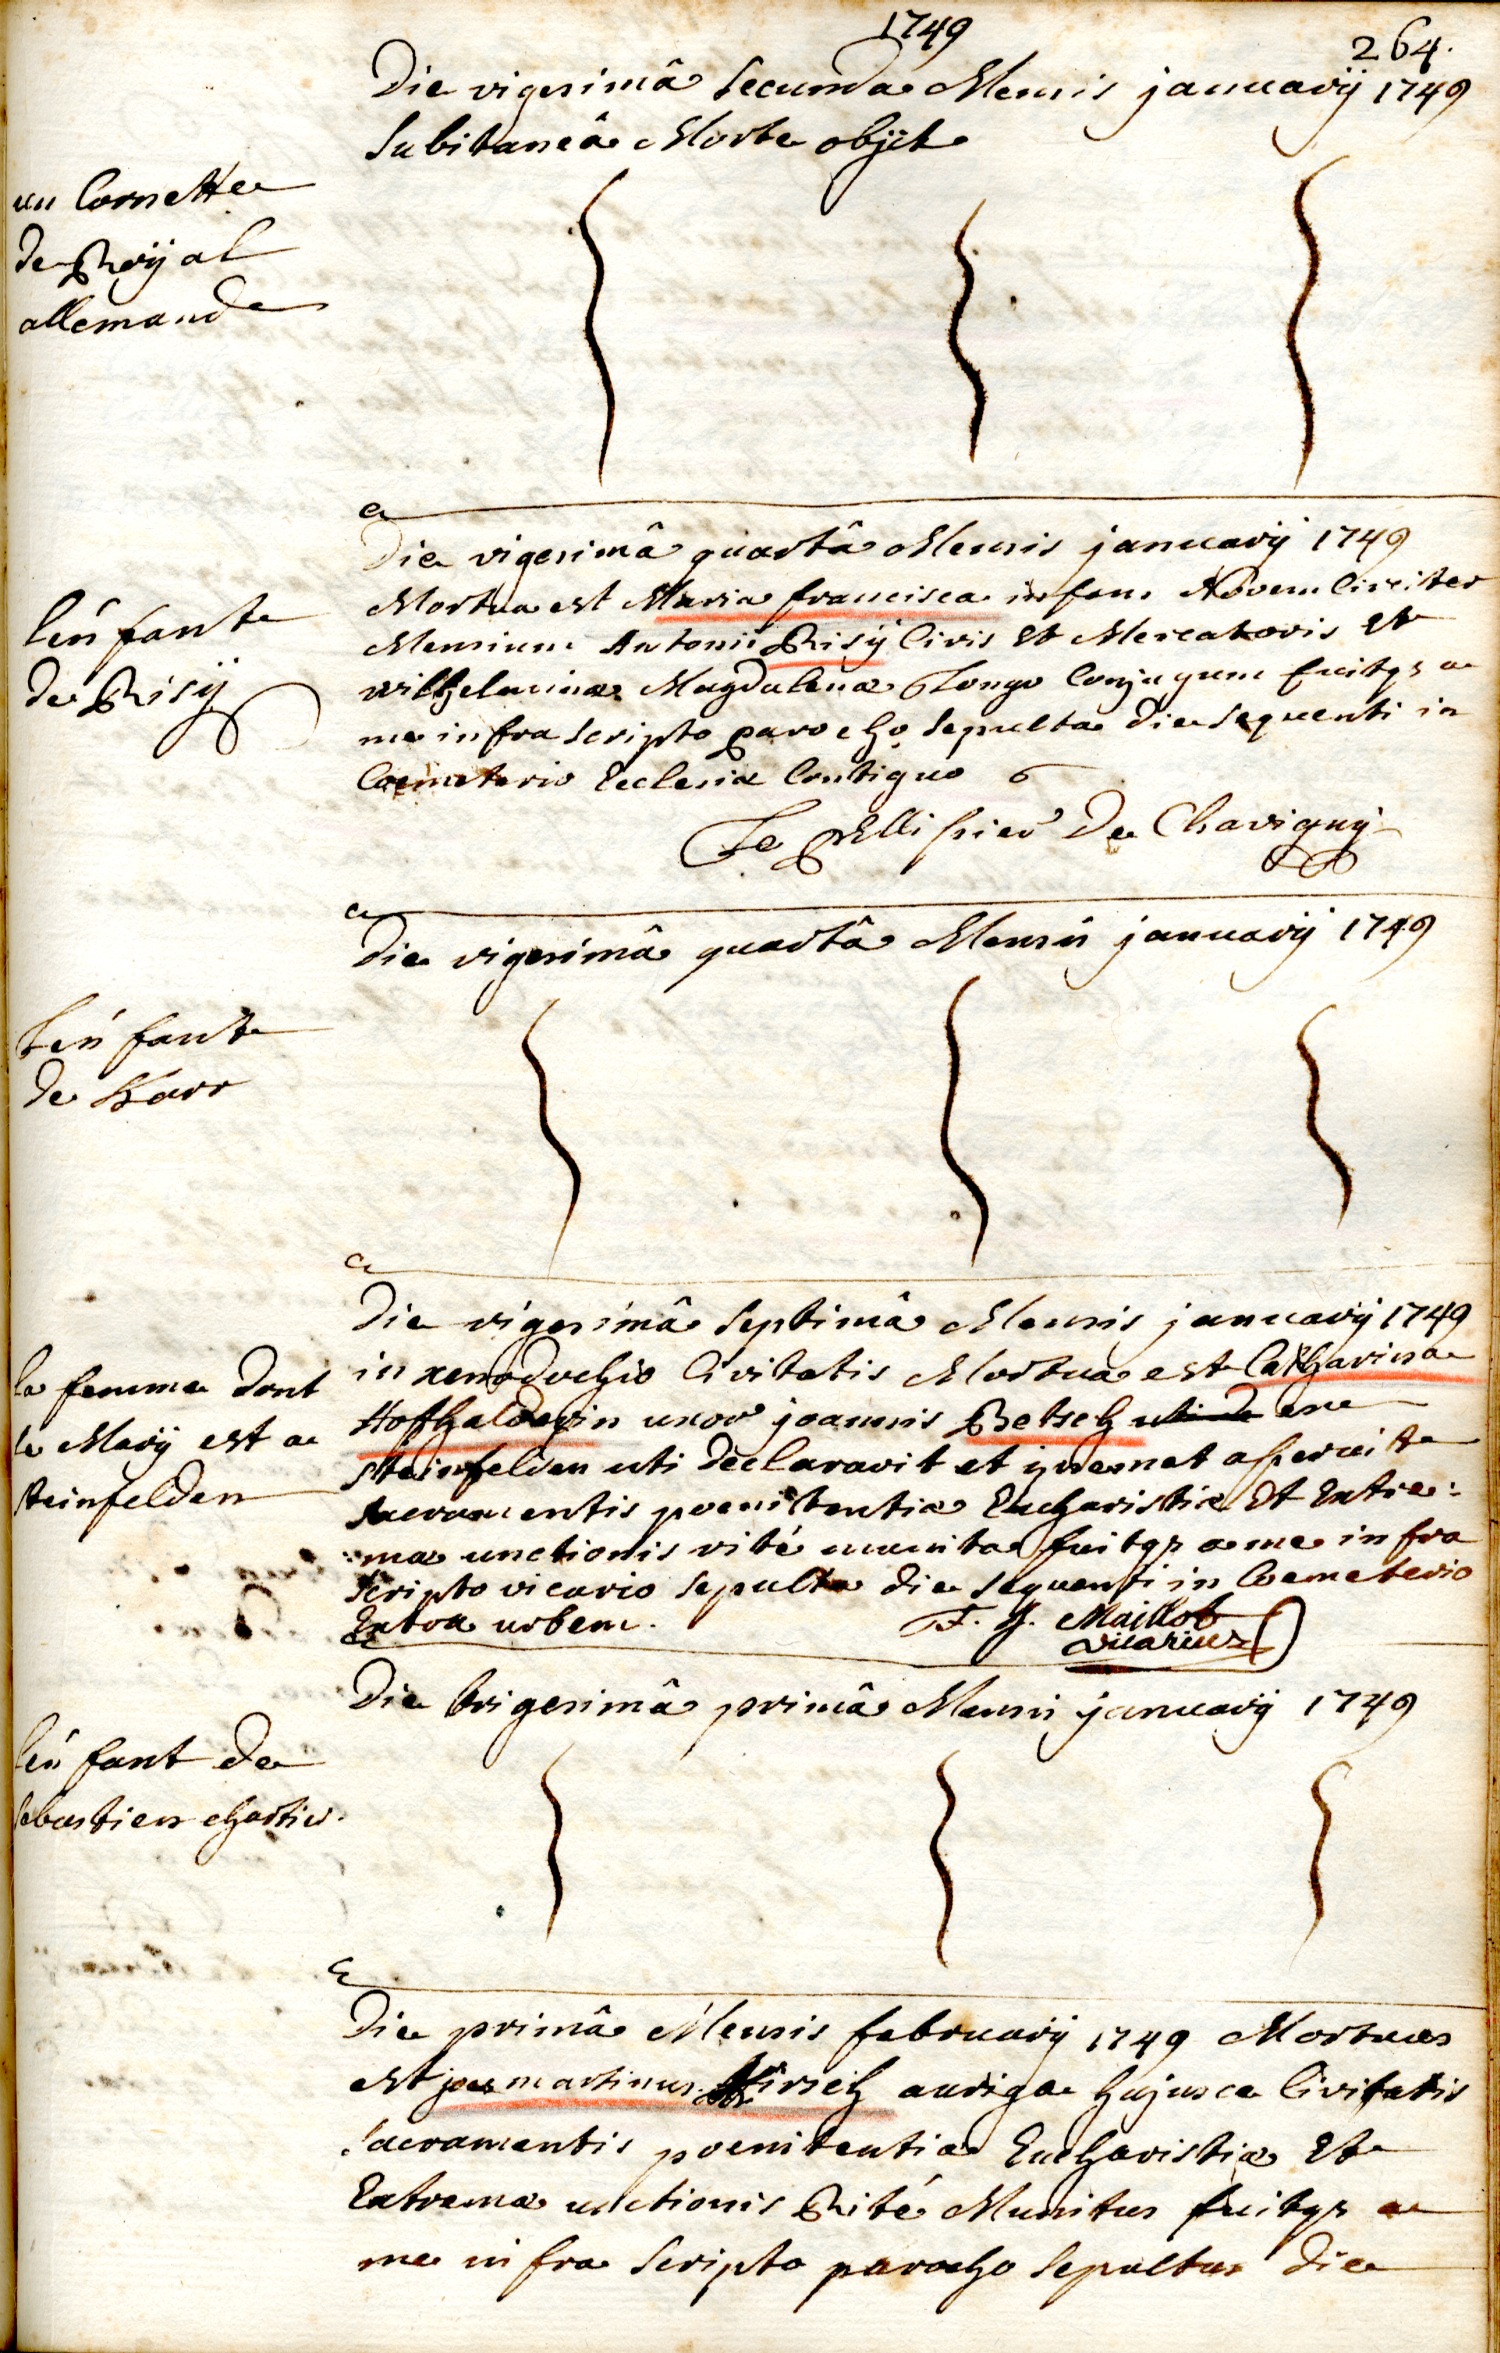 1749
264.
Die vigesimâ secunda Mensis januarij 1749
subitaneâ Morte objit
un Cornette
de Roijal
allemande
Die vigesimâ quartâ Mensis januarij 1749
Mortua est Maria francisca infans Novem Circiter
Mensium Antonii Risij Civis Et Mercatoris Et
wilhelminæ Magdalenæ Longo Conjugum fuitqz a
me infra scripto parocho sepulta die sequenti in
Coemeterio Ecclesiæ Contiguo
Le pElissier De Chavignij
l'enfant
de Risij
Die vigesimâ quartâ Mensis januarij 1749
L'enfant
de Karr
Die vigesimâ septimâ Mensis januarij 1749
in xenodochio Civitatis Mortua est Catharina
Hofhalderin uxor joannis Betsch ex
steinfelden uti declaravit et asseruit
sacramentis poenitentiæ Eucharistiæ Et Extre:
mæ unctionis rité munita fuitqz a me infra
scripto vicario sepulta die sequenti in Coemeterio
Extra urbem.
F. J. Maillot
vicarius
la femme dont
le Marij est a
steinfelden
Die trigesimâ primâ Mensis januarij 1749
l'enfant de
sebastien chartier.
Die primâ Mensis februarij 1749 Mortuus
est joes martinus Hirsch auriga hujusce Civitatis
sacramentis poenitentiæ Eucharistiæ Et
Extremæ unctionis Rité Munitus fuitqz a
me infra scripto parocho sepultus die